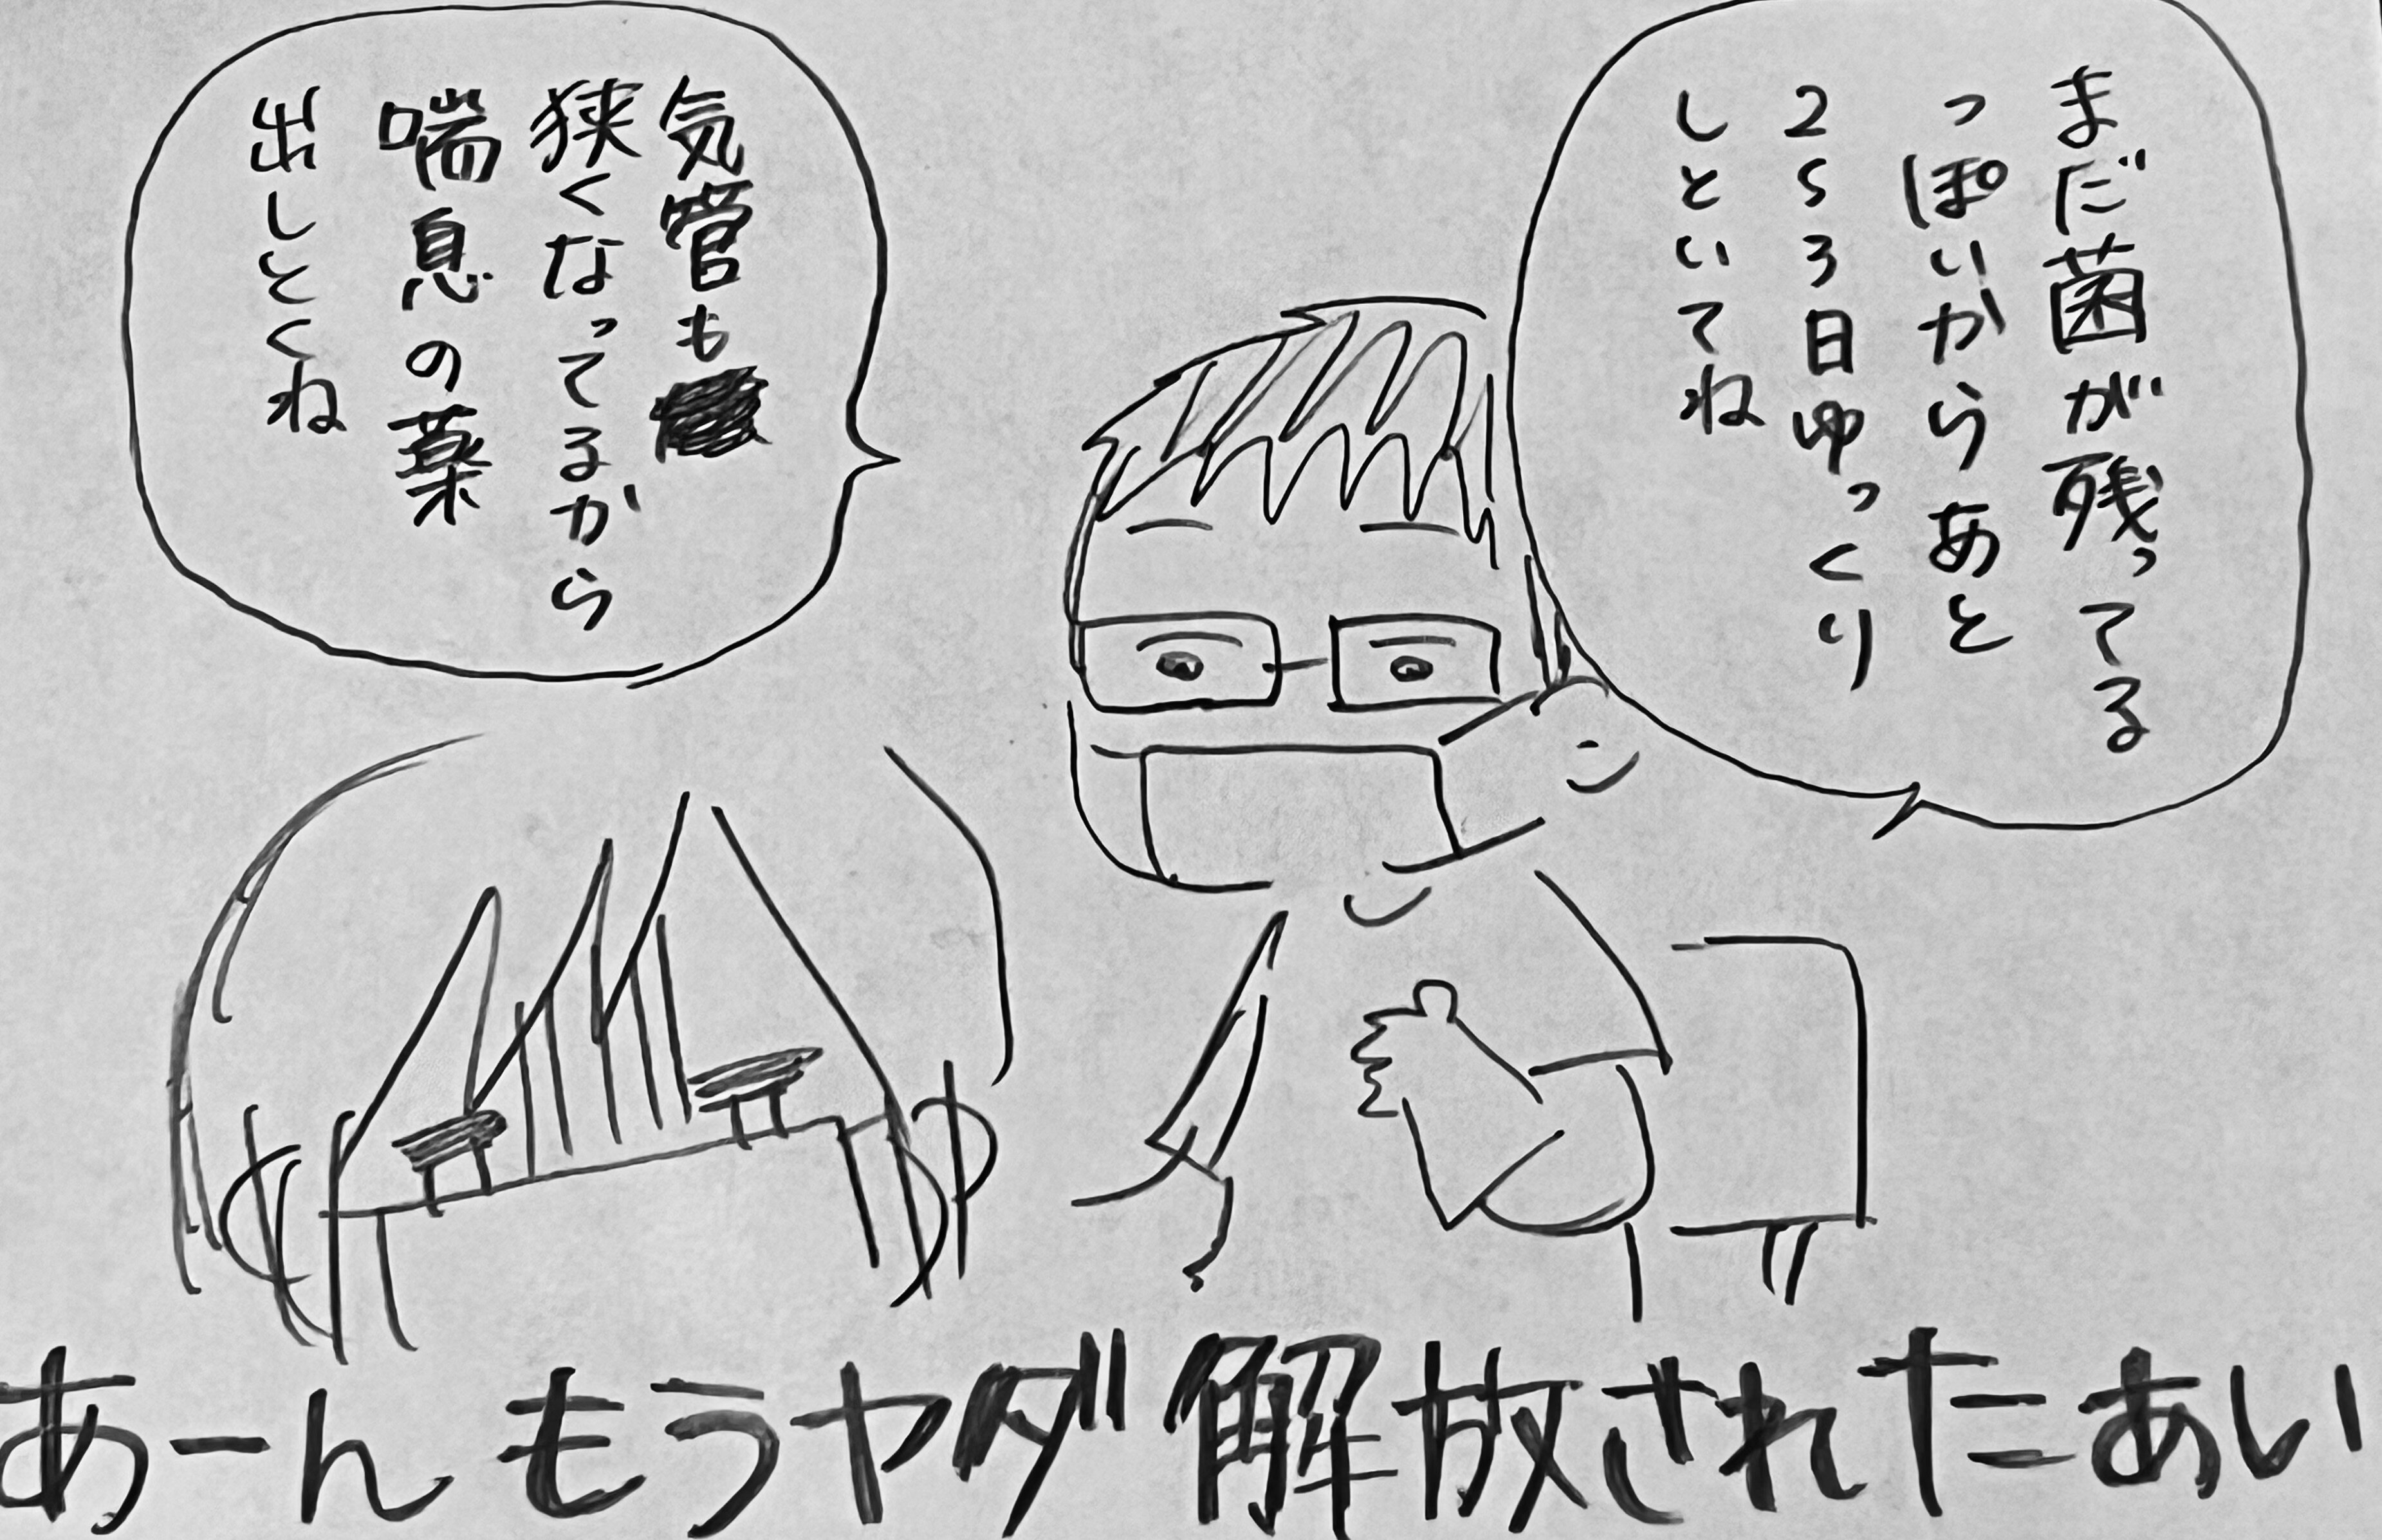 まだ菌が残ってる
っぽいからあと
2～3日ゆっくり
しといてね
気管も
狭くなってるから
喘息の薬
出しとくね
あーんもうヤダ解放されたあい